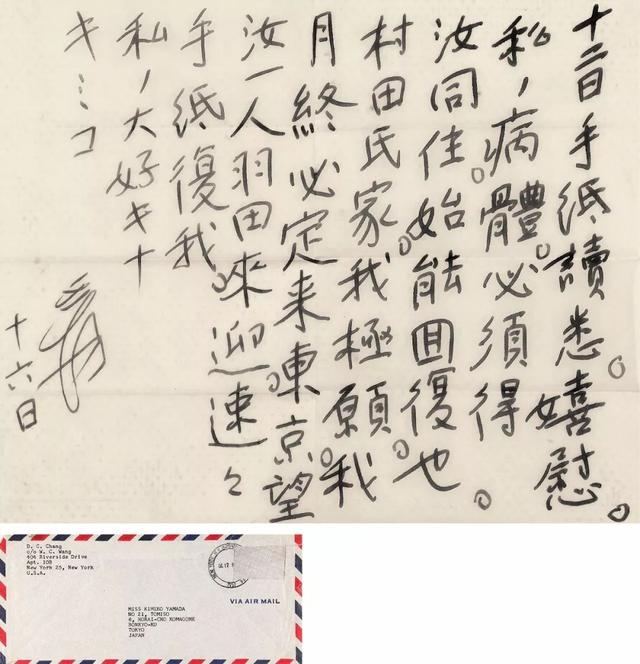 十二日手紙讀悉。嬉慰。
私ノ病體。必須得
汝同住。始能囬復也。
村田氏家。我極願。我
月終必定来東京。望
汝一人羽田來迎。速々
手紙復我。
私ノ大好キナ
キミコ
爰
十六日
D. C. Chang
c/o W. C. Wang
404 Riverside Drive
Apt. 10B
New York 25, New York
U.S.A.
VIA AIR MAIL
MISS KIMIKO YAMADA
NO 21, TOMISO
6, HORAI-CHO KOMAGOME
BONKYO-KU
TOKYO
JAPAN